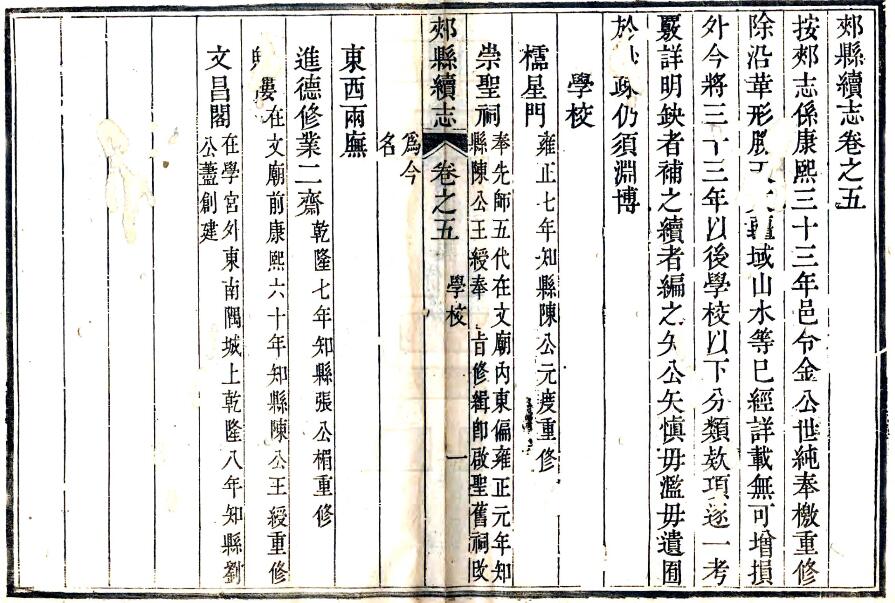 郟縣續志卷之五
按郟志係康熙三十三年邑令金公世純奉檄重修
除沿革形勝 疆域山水等已經詳載無可增損
外今將三十三年以後學校以下分類欵項逐一考
覈詳明缺者補之續者編之矢公矢慎毋濫毋遺囿
於 仍須淵博
學校
櫺星門 雍正七年知縣陳公元度重修
崇聖祠 奉先師五代在文廟內東偏雍正元年知
縣陳公王綬奉 旨修緝卽啟聖舊祠改
郟縣續志 卷之五 學校 一
爲今
名
東西兩廡
進德修業二齋 乾隆七年知縣張公楣重修
在文廟前康熙六十年知縣陳公王綬重修
文昌閣 在學宮外東南隅城上乾隆八年知縣劉
公藎創建